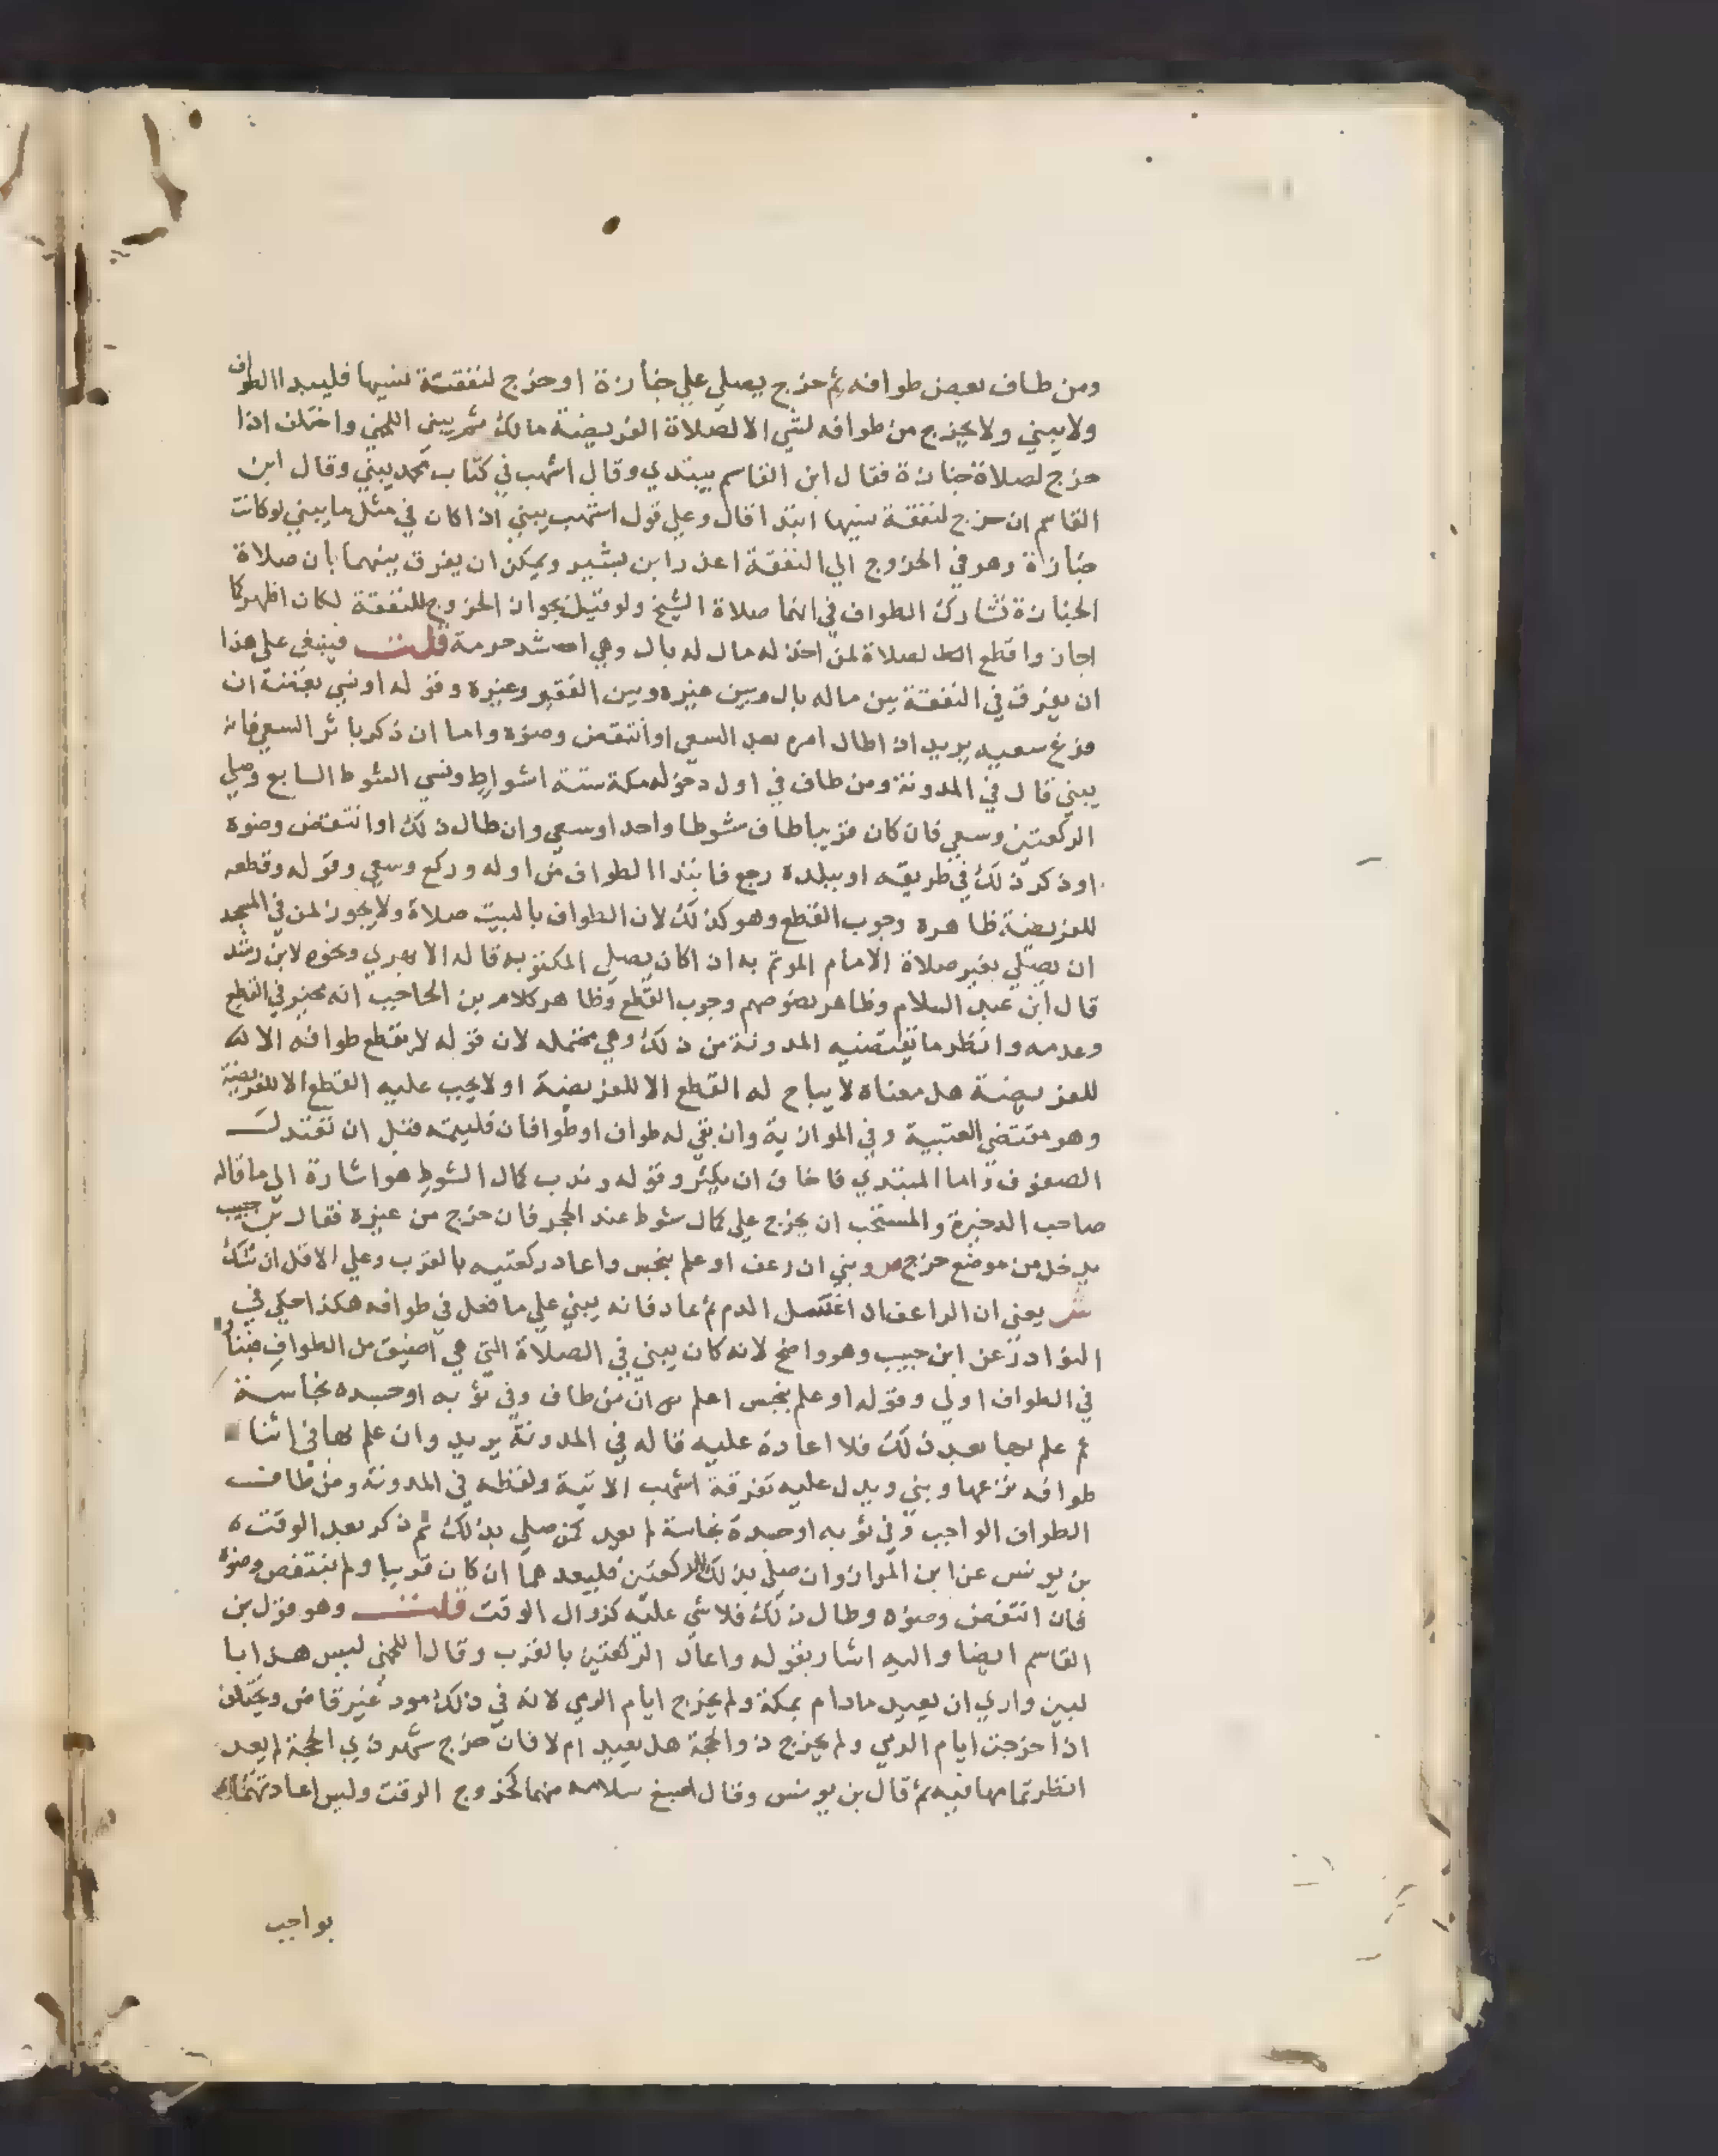 ومن طاف بعض طوافه ثم خرج يصلي علي جنازة او خرج لنفقة نسيها فليبدا الطواف
ولا يبني ولا يخرج من طوافه لشي الا لصلاة الفريضة مالك ثم يبني اللخمي واختلف اذا
خرج لصلاة جنازة فقال ابن القاسم يبتدي وقال اشهب في كتاب محمد يبني وقال ابن
القاسم ان خرج لنفقة نسيها ابتدا قال وعلي قول اشهب يبني اذا كان في مثل ما يبني لو كانت
جنازة وهو في الخروج الي النفقة اعذر ابن بشير ويمكن ان يفرق بينهما بان صلاة
الجنازة تشارك الطواف في انها صلاة الشيخ ولو قيل بجواز الخروج للنفقة لكان اظهر كما
اجازوا قطع الصلاة لمن اخذ له مال له بال وهي اشد حرمة قلت فينبغي علي هذا
ان يفرق في النفقة بين ما له بال وبين غيره وبين الفقير وغيره وقوله او نسي بعضه ان
فرغ سعيه يريد اذا طال امره بعد السعي او انتقض وضوه واما ان ذكر باثر السعي فانه
يبني قال في المدونة ومن طاف في اول دخوله مكة ستة اشواط ونسي الشوط السابع وصلي
الركعتين وسعي فان كان قريبا طاف شوطا واحدا وسعي وان طال ذلك او انتقض وضوه
او ذكر ذلك في طريقه او ببلده رجع فابتدا الطواف من اوله وركع وسعي وقوله وقطعه
للفريضة ظاهره وجوب القطع وهو كذلك لان الطواف بالبيت صلاة ولا يجوز لمن في المسجد
ان يصلي بغير صلاة الامام الموتم به اذا كان يصلي المكتوبه قاله الابهري ونحوه لابن رشد
قال ابن عبد السلام وظاهر نصوصهم وجوب القطع وظاهر كلام بن الحاجب انه مخير في القطع
وعدمه وانظر ما تقتضيه المدونة من ذلك وهي محتمله لان قوله لا يقطع طوافه الا
للفريضة هل معناه لا يباح له القطع الا للفريضة او لا يجب عليه القطع الا للفريضة
وهو مقتضي العتبية وفي الموازية وان بقي له طواف او طوافان فليتمه قبل ان تعتدل
الصفوف واما المبتدي فاخاف ان يكثر وقوله وندب كمال الشوط هو اشارة الي ما قاله
صاحب الذخيرة والمستحب ان يخرج علي كمال شوط عند الحجر فان خرج من غيره فقال بن حبيب
يدخل من موضع خرج ص وبني ان رعف او علم بنجس واعاد ركعتيه بالقرب وعلي الاقل ان شك
ش يعني ان الراعف اذا اغتسل الدم ثم عاد فانه يبني علي ما فعل في طوافه هكذا حكي في
النوادر عن ابن حبيب وهو واضح لانه كان يبني في الصلاة التي هي اضيق من الطواف فبناؤه
في الطواف اولي وقوله او علم بنجس اعلم ان من طاف وفي ثوبه او جسده نجاسة
ثم علم بها بعد ذلك فلا اعادة عليه قاله في المدونة يريد وان علم بها في اثنا
طوافه نزعها وبني ويدل عليه تفرقة اشهب الاتية ولفظه في المدونة ومن طاف
الطواف الواجب وفي ثوبه او جسده نجاسة لم يعد كمن صلي بذلك ثم ذكر بعد الوقت
بن يونس عن ابن المواز وان صلي بذلك الركعتين فليعدهما ان كان قريبا ولم ينتقض وضوه
فان انتقض وضوه وطال ذلك فلا شي عليه كزوال الوقت قلت وهو قول بن
القاسم ايضا واليه اشار بقوله واعاد الركعتين بالقرب وقال اللخمي ليس هذا با
لبين واري ان يعيد ما دام بمكة ولم يخرج ايام الرمي لانه في ذلك مود غير قاض ويختلف
اذا خرجت ايام الرمي ولم يخرج ذو الحجة هل يعيد ام لا فان خرج شهر ذي الحجة لم يعد
انظر تمامها فيه ثم قال بن يونس وقال اصبغ سلامه منهما كخروج الوقت وليس اعادتهما
بواجب